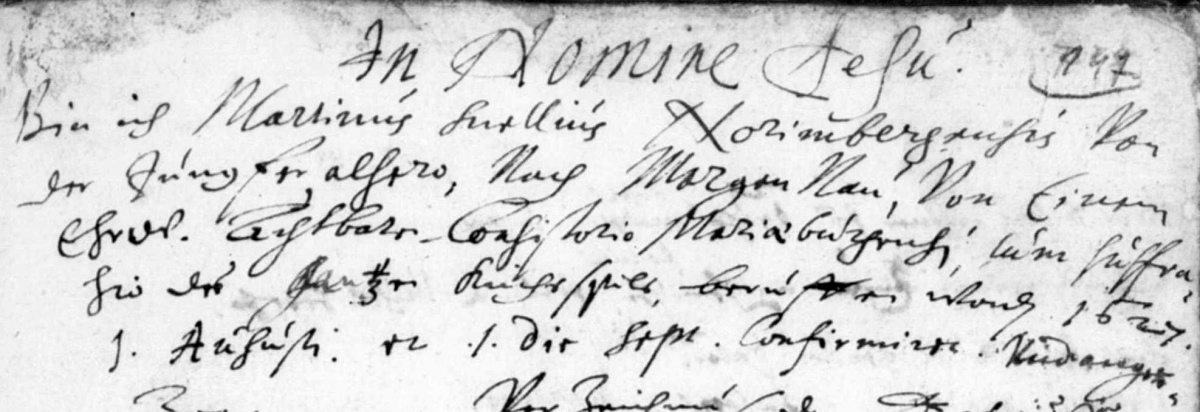 In Nomine Jesu. 147
Bin ich Martinus Snellius Norimbergensis Von
der Jungfer alhero, Nach Morgen Nau, Von Einem
Ehrw. Achtbare Consistorio Mariæburgensi, zum suffra
gio des gantzen Kirchspils, beruffen word. 1627.
1. Augusti. et 1. Die Sept. Confirmiret. Und ange
Von